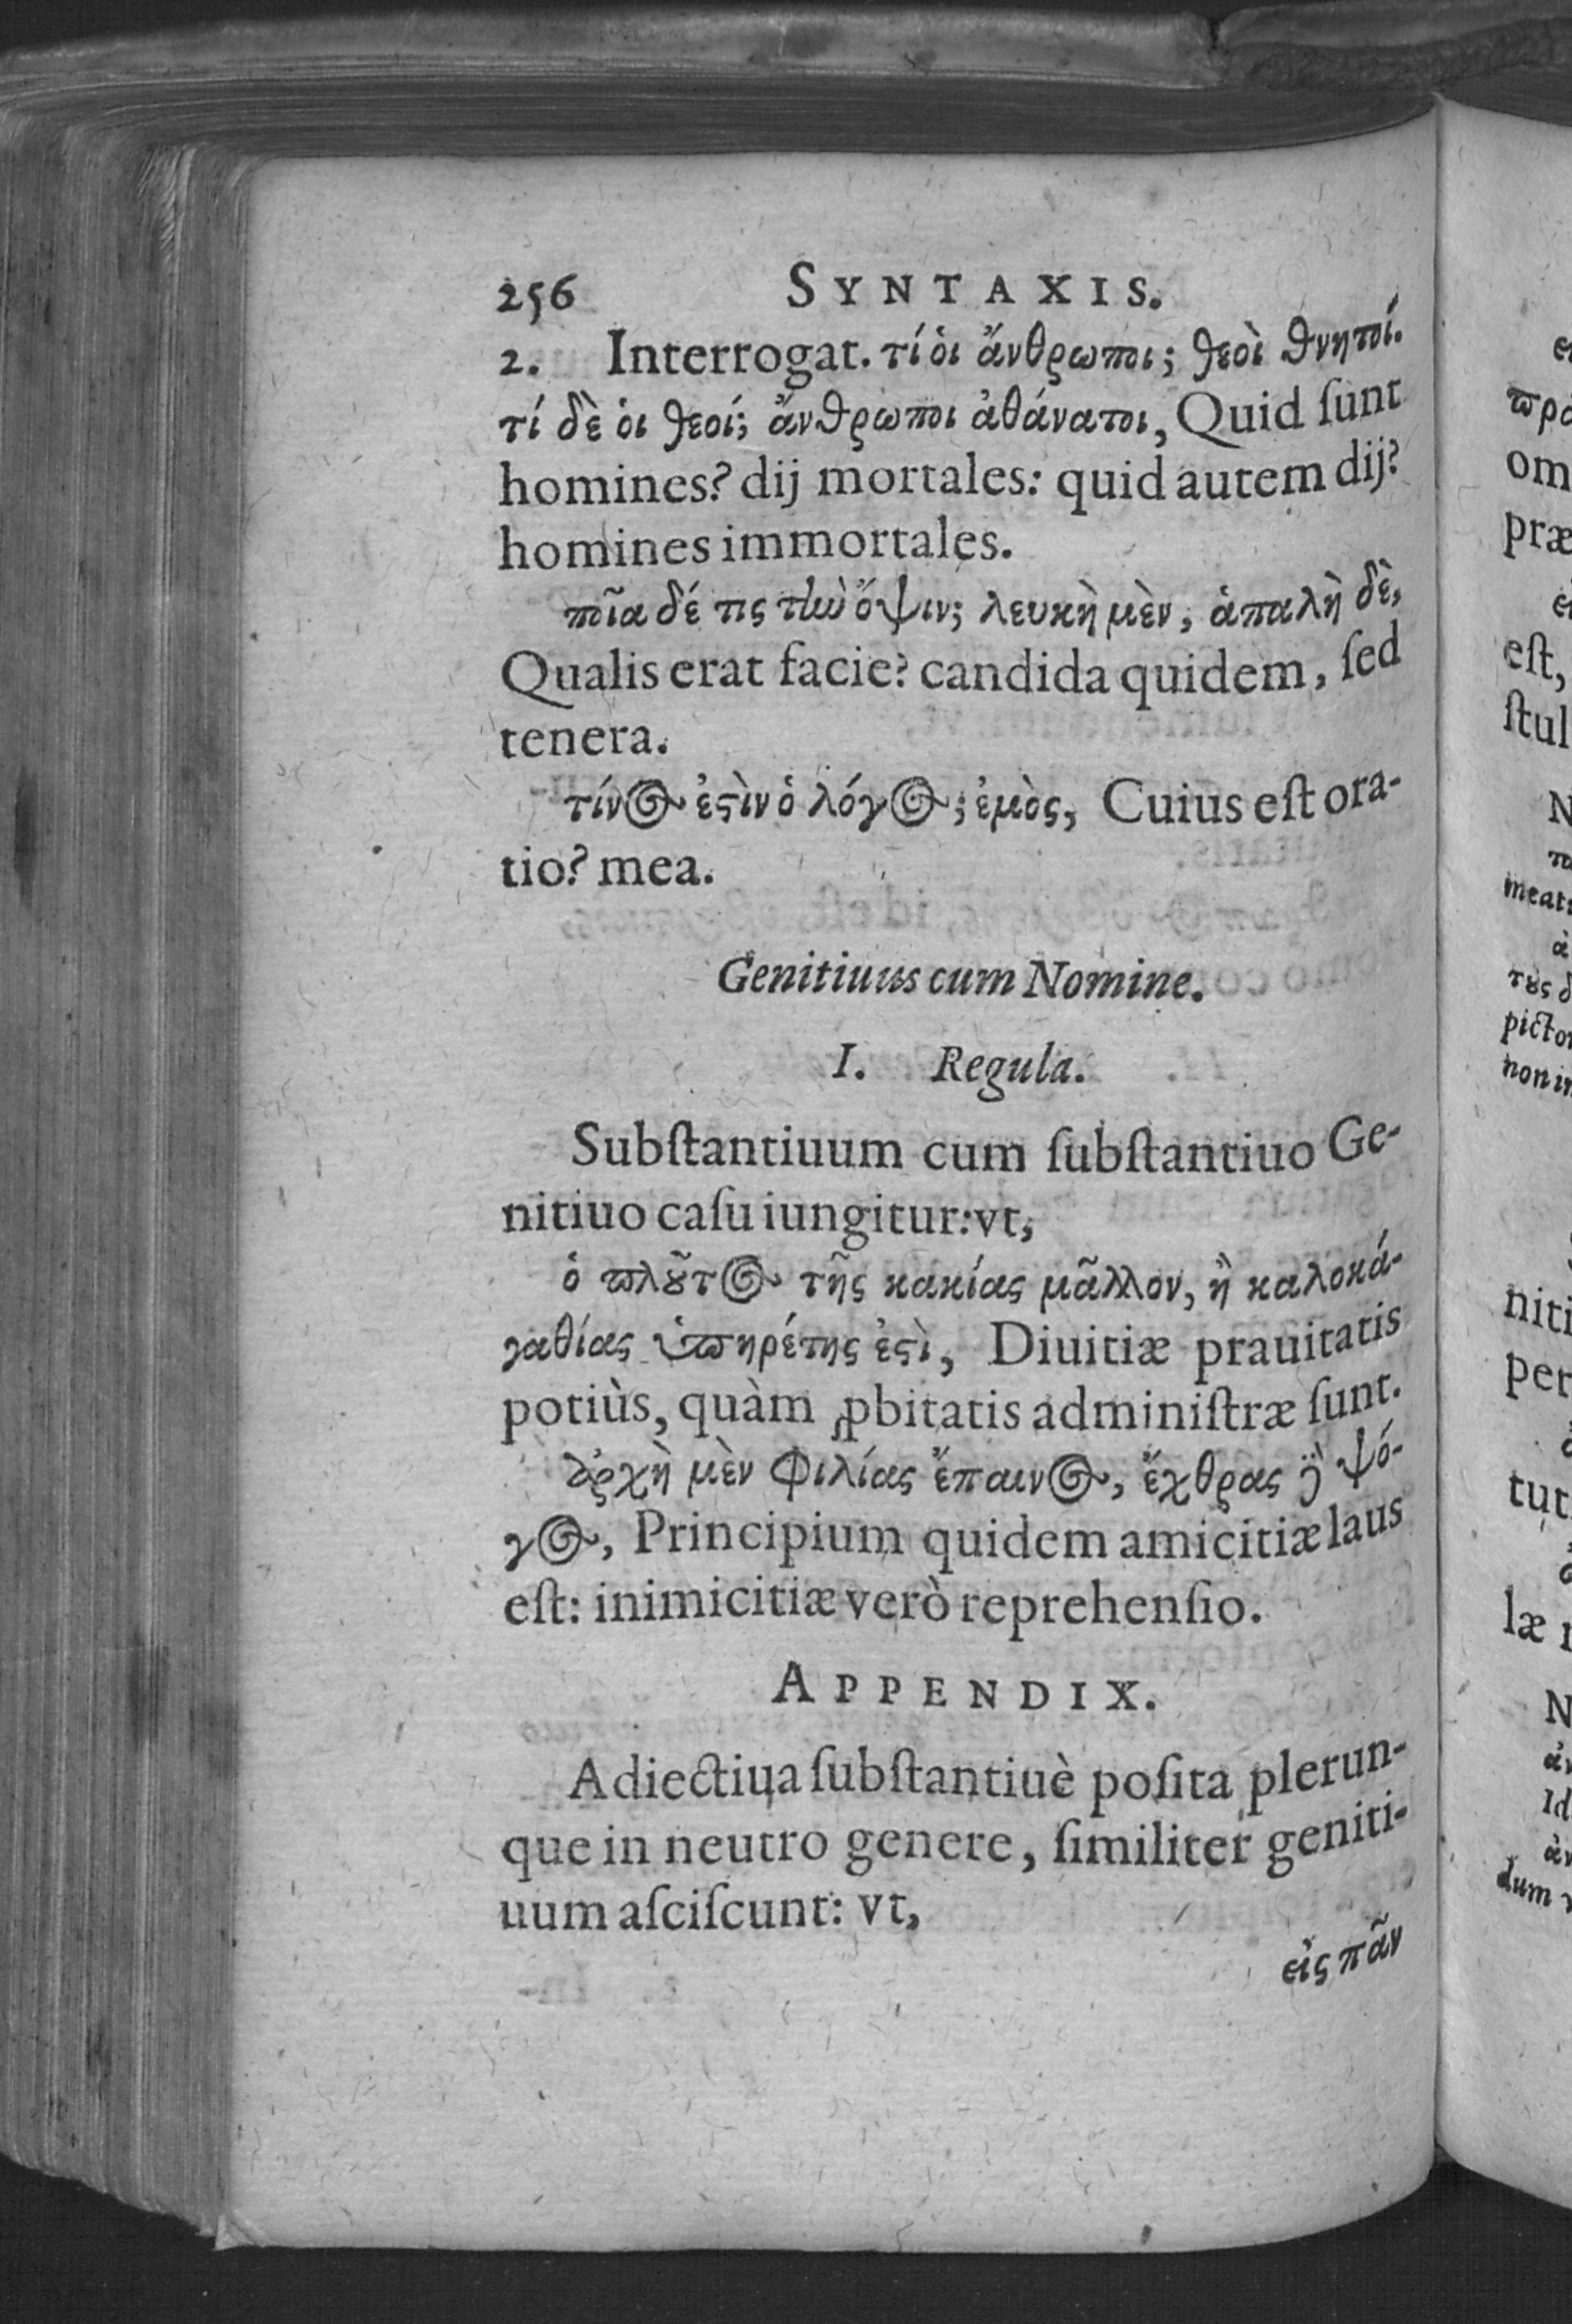 256 SYNTAXIS.
2. Interrogat. τί ὁι ἄνθρωποι; θεοὶ θνητοί.
τί δὲ ὁι θεοί; ἄνθρωποι ἀθάνατοι, Quid ſunt
homines? dij mortales: quid autem dij?
homines immortales.
ποῖα δέ τις τὴν ὄψιν; λευκὴ μὲν, ἁπαλὴ δὲ,
Qualis erat facie? candida quidem, ſed
tenera.
τίνος ἐϛὶν ὁ λόγος; ἐμὸς, Cuius eſt ora-
tio? mea.
Genitiuus cum Nomine.
I. Regula.
Subſtantiuum cum ſubſtantiuo Ge-
nitiuo caſu iungitur: vt,
ὁ ϖλȣ͂τος τῆς κακίας μᾶλλον, ἢ καλοκά-
γαθίας ὑϖηρέτης ἐϛὶ, Diuitiæ prauitatis
potiùs, quàm ꝓbitatis adminiſtræ ſunt.
ἀρχὴ μὲν φιλίας ἔπαινος, ἔχθρας δὲ ψό-
γος, Principium quidem amicitiæ laus
eſt: inimicitiæ verò reprehenſio.
APPENDIX.
Adiectiua ſubſtantiuè poſita plerun-
que in neutro genere, ſimiliter geniti-
uum aſciſcunt: vt,
εἰς πᾶν